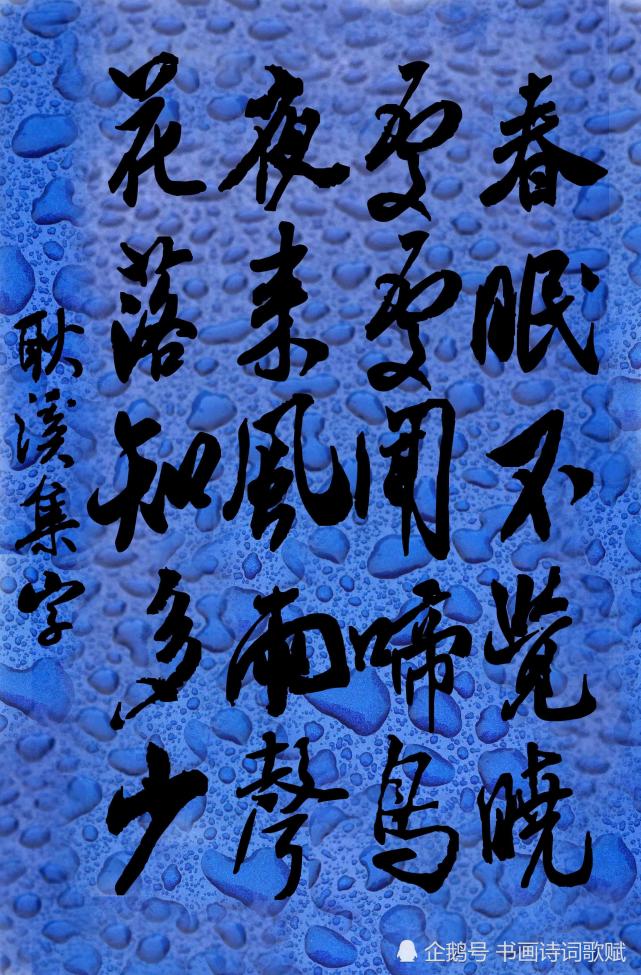 春眠不覺曉
處處聞啼鳥
夜来風雨聲
花落知多少
耿溪集字
企鹅号 书画诗词歌赋